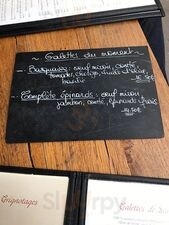 ~ Galettes du moment ~
- Basquaise : oeuf miroir, comté,
tomates, chorizo,
basilic
- Complète épinards : oeuf miroir
jambon, comté, épinards frais
14.50€
Grignotages
Galettes de